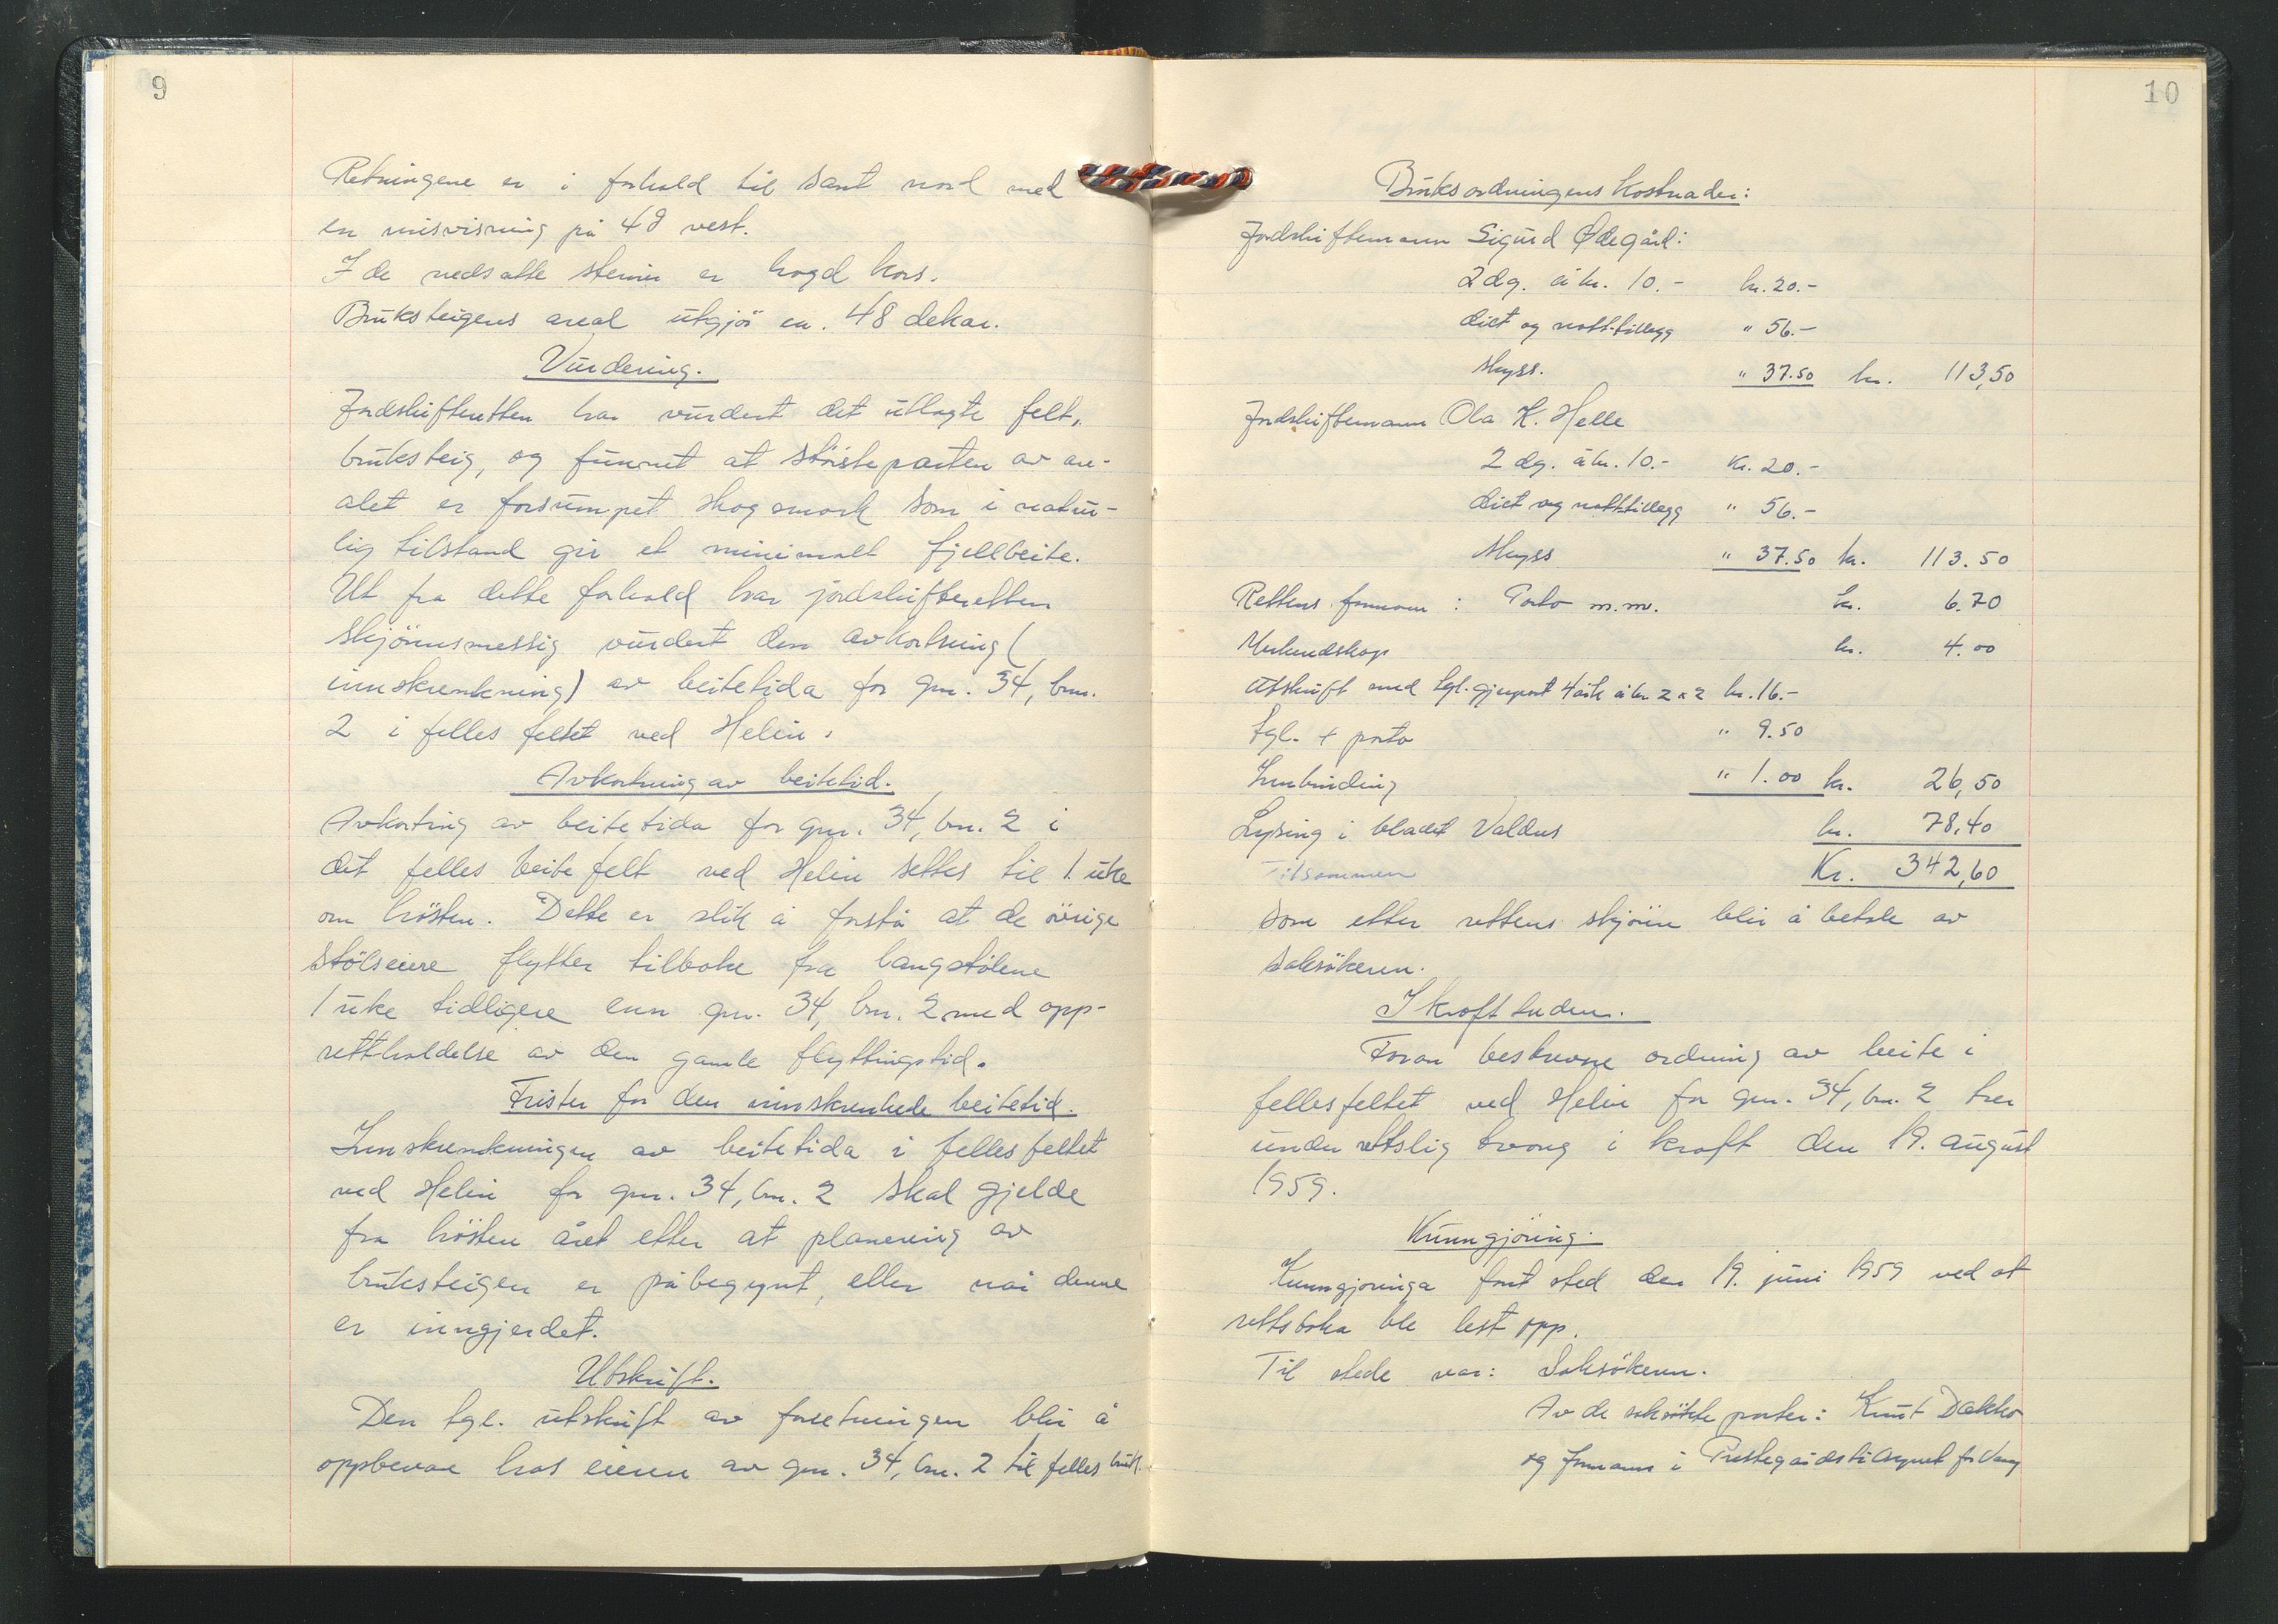 9
Retningene er i forhold til sant nord med
en misvisning på 4g vest.
I de nedsatte steiner er hogd kors.
Bruksteigens areal utgjör ca. 48 dekar.
Vurdering.
Jordskifteretten har vurdert det utlagte felt,
bruksteig, og funnet at störsteparten av are-
alet er forsumpet skogsmark som i natur-
lig tilstand gir et minimalt fjellbeite.
Ut fra dette forhold har jordskifteretten
skjönnsmessig vurdert den avkortning (
innskrenkning) av beitetida for gnr. 34, bnr.
2 i felles feltet ved Helin.
Avkortning av beitetid.
Avkorting av beitetida for gnr. 34, bnr. 2 i
det felles beitefelt ved Helin settes til 1 uke
om hösten. Dette er slik å forstå at de övrige
stölseiere flytter tilbake fra langstölene
1 uke tidligere enn gnr. 34, bnr. 2 med opp-
rettholdelse av den gamle flyttingstid.
Frister for den innskrenkede beitetid.
Innskrenkningen av beitetida i fellesfeltet
ved Helin for gnr. 34, bnr. 2 skal gjelde
fra hösten året etter at planering av
bruksteigen er påbegynt, eller når denne
er inngjerdet.
Utskrift.
Den tgl. utskrift av forretningen blir å
oppbevare hos eieren av gnr. 34, bnr. 2 til felles bruk.
10
Bruksordningens kostnader:
Jordskiftemann Sigurd Ødegård:
2 dg. à kr. 10.- kr. 20.-
diet og natt-tillegg " 56.-
Skyss. " 37.50 kr. 113,50
Jordskiftemann Ola K. Helle
2 dg. à kr. 10.- Kr. 20.-
diet og natt-tillegg " 56.-
Skyss " 37.50 kr. 113.50
Rettens formann : Porto m.m. kr. 6.70
Merkundskap kr. 4.00
Utskrift med tgl. gjenpart 4 ark à kr. 2 x 2 kr. 16.-
Tgl. + porto " 9.50
Innbinding " 1.00 kr. 26,50
Lysing i bladet Valdres kr. 78,40
Tilsammen Kr. 342,60
som etter rettens skjönn blir å betale av
saksökeren.
Ikrafttreden.
Foran beskrevne ordning av beite i
fellesfeltet ved Helin for gnr. 34, bnr. 2 trer
under rettslig tvang i kraft den 19. august
1959.
Kunngjöring.
Kunngjöringa fant sted den 19. juni 1959 ved at
rettsboka ble lest opp.
Til stede var: Saksökeren.
Av de saksökte parter: Knut Dakko
og formann i Prestegårdstilsynet for Vang